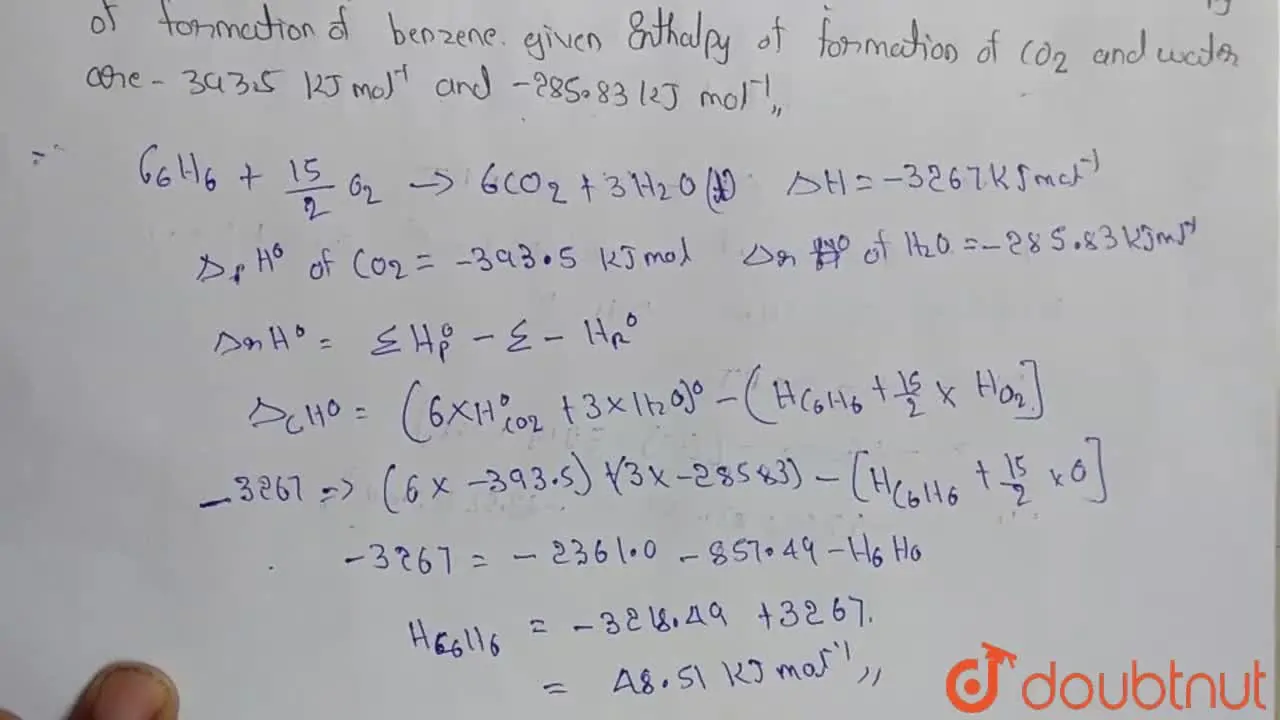 of formation of benzene. given Enthalpy of formation of CO2 and water
are - 393.5 KJ mol⁻¹ and -285.83 KJ mol⁻¹,,
C6H6 + 15/2 O2 → 6CO2 + 3H2O (l) ΔH = -3267 KJ mol⁻¹
ΔfH° of CO2 = -393.5 KJ mol Δn of H2O = -285.83 KJ mol⁻¹
ΔnH° = ΣHp° - Σ - HR°
ΔcH° = (6×H°CO2 + 3×H2O)° - (HC6H6 + 15/2 × HO2]
-3267 => (6× -393.5) + (3× -28583) - [HC6H6 + 15/2 × 0]
-3267 = - 2361.0 - 857.49 - H6H6
HC6H6 = -3218.49 + 3267.
= 48.51 KJ mol⁻¹,,
doubtnut